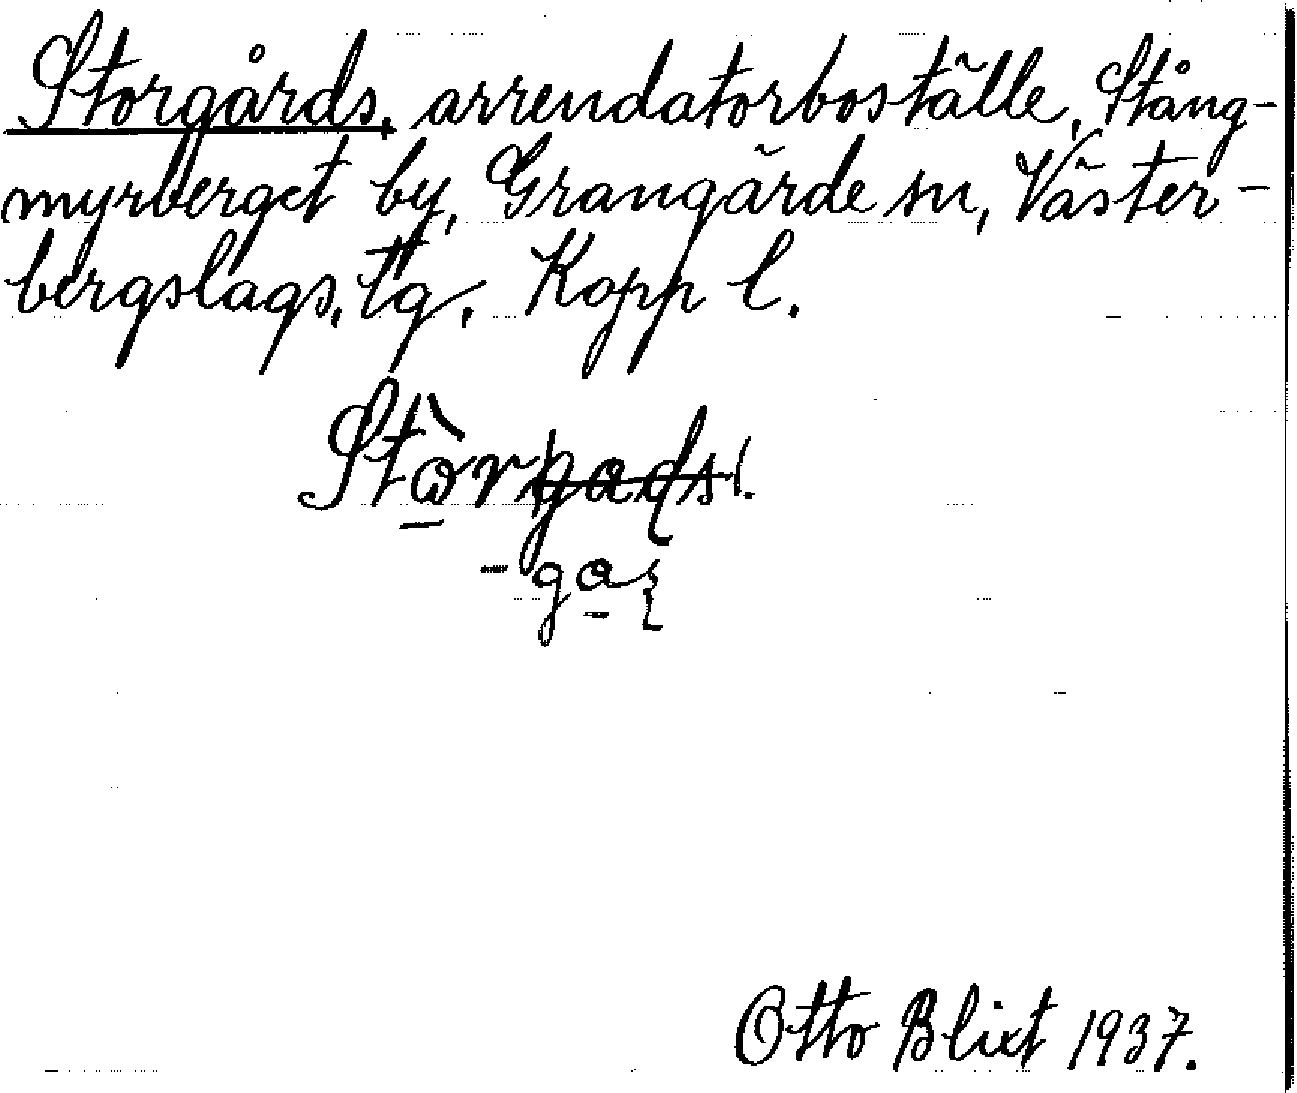 Storgårds, arrendatorboställe, Stång-
myrberget by, Grangärde sn, Väster-
bergslags, tg. Kopp l.
Stòrgads.
- ga
Otto Blixt 1937.